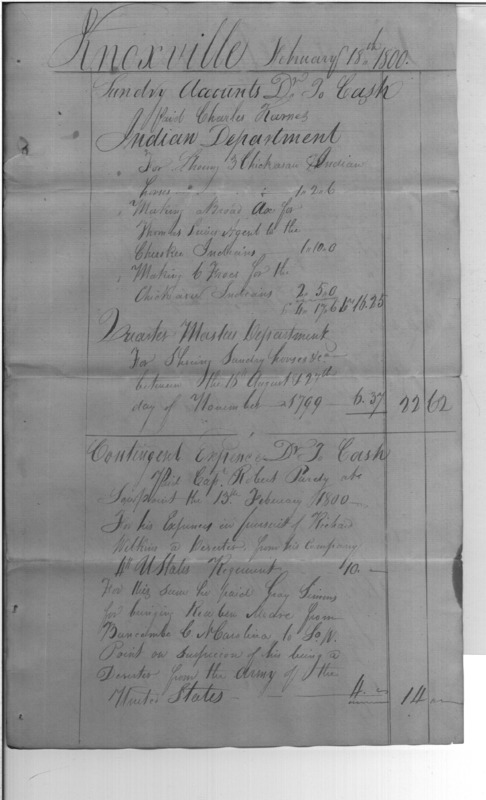 Knoxville February 18th 1800.
Sundry Accounts Dr. To Cash
Paid Charles Karnes
Indian Department
For Shoeing 3 Chickasaw Indian
horses " " : 1. 2. 6
" Making a Broad Ax for
Thomas agent to the
Cherokee Indians 1. 10. 0
" Making 6 for the
Chickasaw Indians 2. 5. 0
16.25
Quarter Master Department
For Shoeing Sundry horses &ca
between the August & 27th
day of November 1799 6.37 22 62
Contingent Expence Dr. To Cash
Paid Capt. Robert Purdy
the 13th February 1800
For his Expences in pursuit of Richard
Wilkins a Deserter from his Company
4th U States Regiment 10. —
For this sum he paid Gray Simms
for bringing from
Buncombe C N Carolina to So. W.
Point on suspicion of his being a
Deserter from the Army of the
United States 4. 14